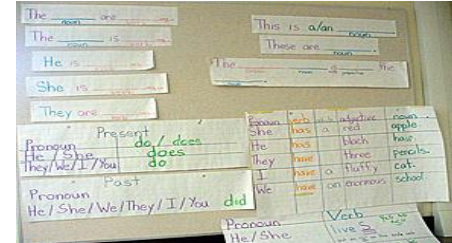 The ____ are ____
noun
The ____ is ____
noun
He is ____
She is ____
They are ____
This is a/an ____
noun
These are ____.
noun
The ____ ____ the
noun
Present
Pronoun do/does
He / She does
They/We/I/You do
Past
Pronoun
He/She/We/They/I/You did
Pronoun verb adjective noun
She has a red apple.
He has black hair.
They have three pencils.
I have a fluffy cat.
We have an enormous school.
Pronoun Verb
He/She live s